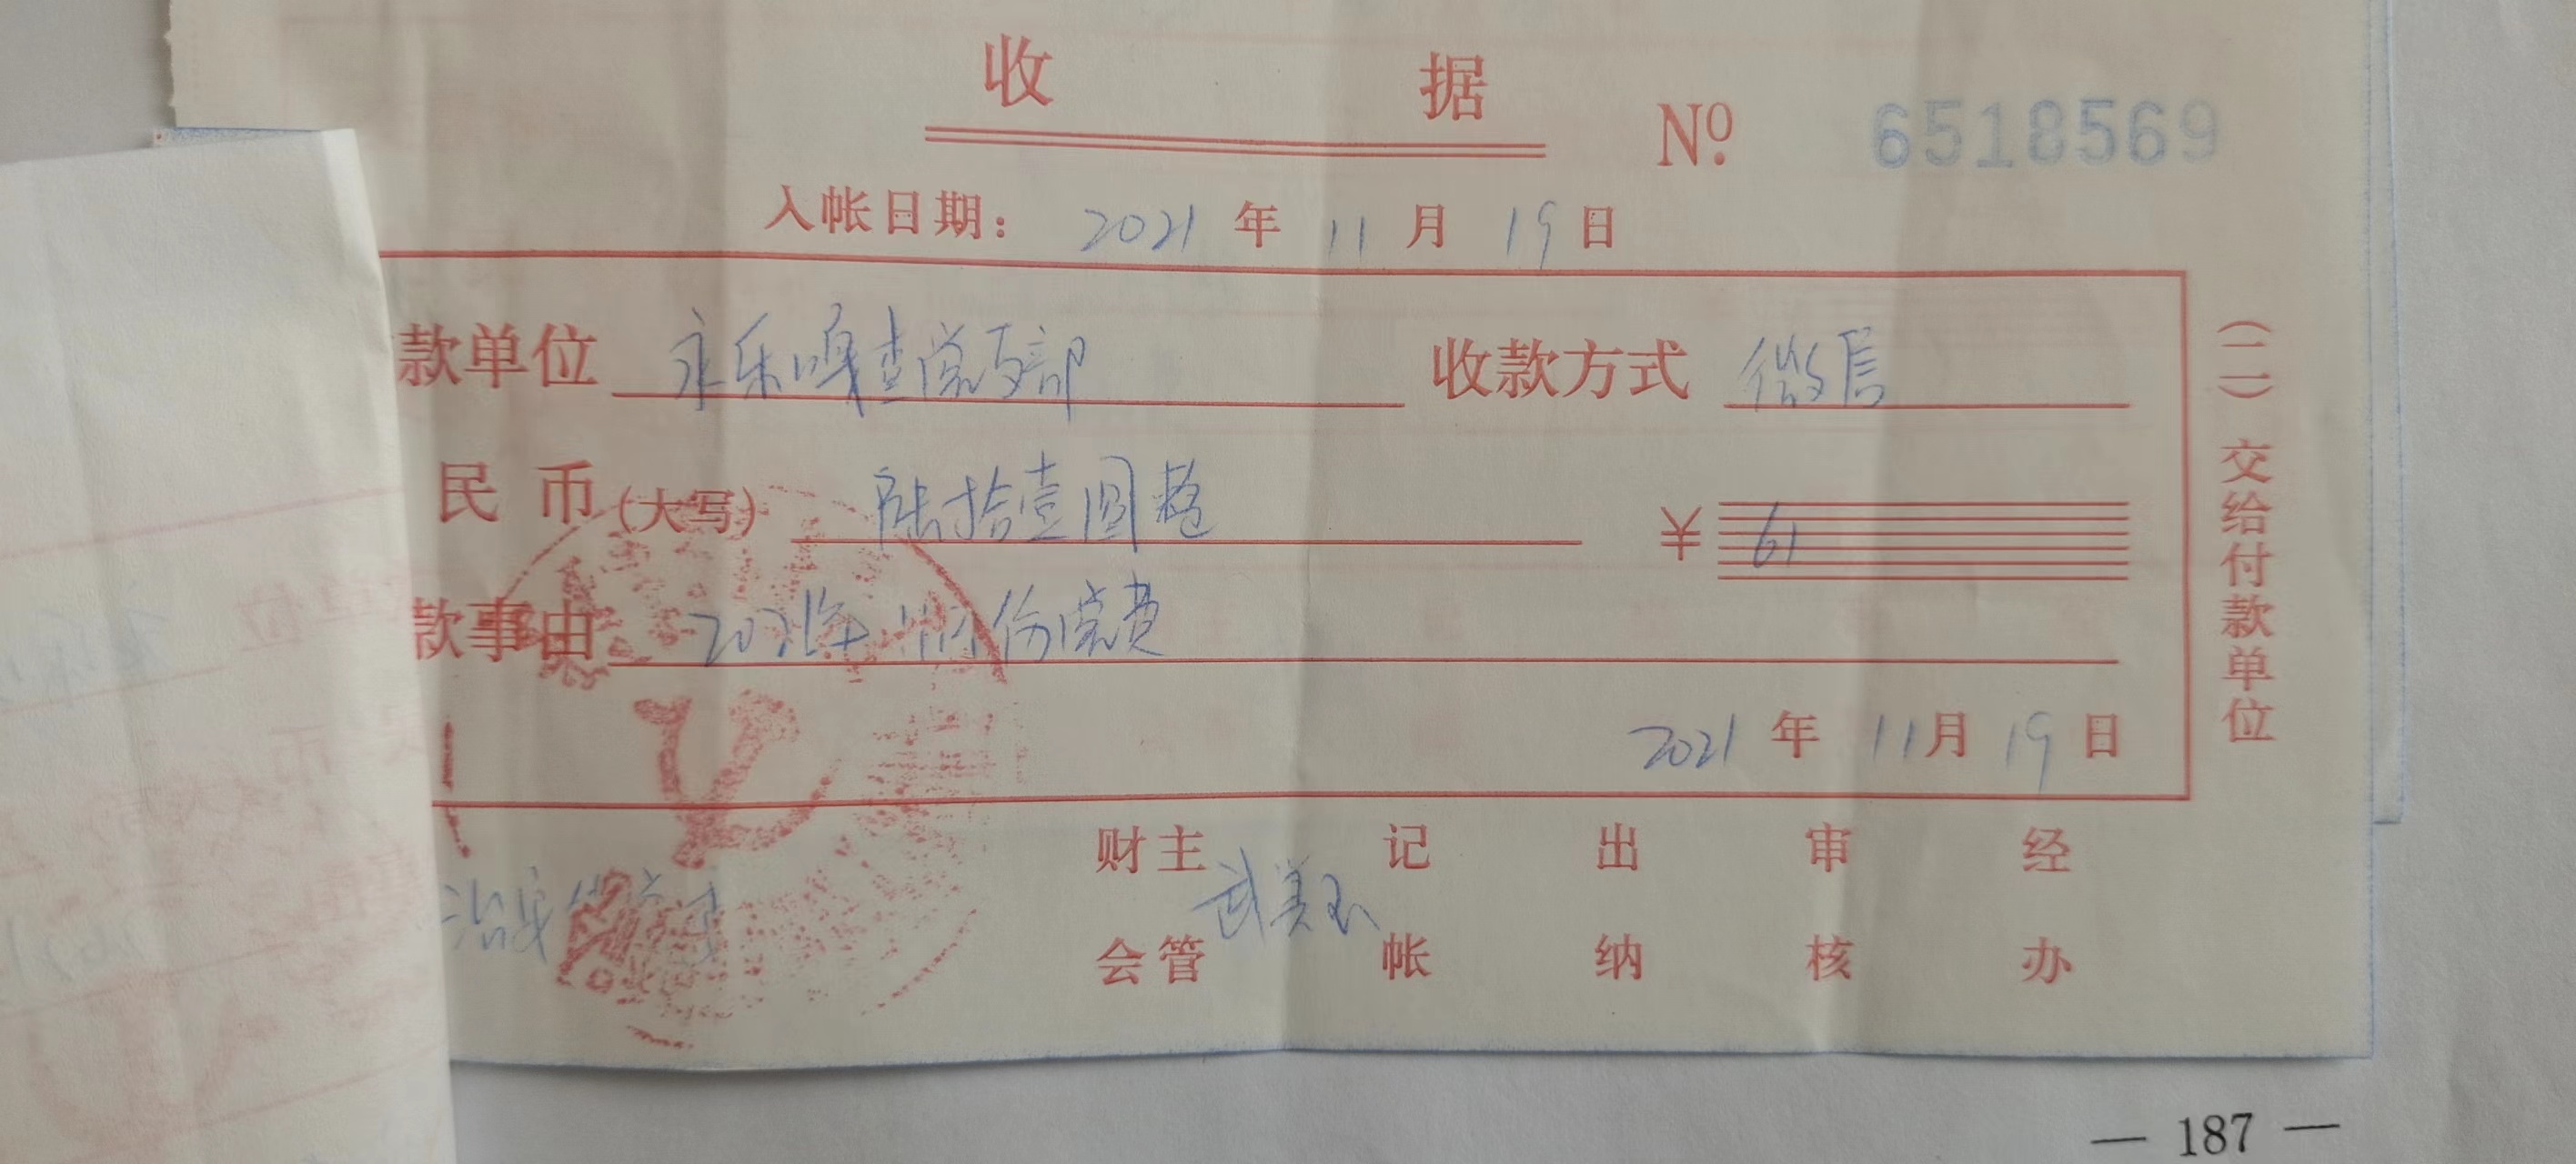 收 据
№ 6518569
入帐日期： 2021 年 11 月 19 日
款单位 永乐嘎查党支部 收款方式 微信
民 币(大写) 陆拾壹圆整 ¥ 61
款事由 2021年 11月份党费
2021 年 11月 19 日
(二)交给付款单位
财会 主管 武美玉 记帐 出纳 审核 经办
— 187 —